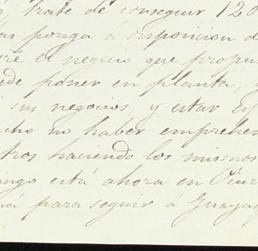 , trate de conseguir 120
as ponga a disposicion d
re el negocio que propu
de poner en planta, y
sus negocios, y estar es
cho no haber emprehen
tros haciendo los mismos
ingo está ahora en Piur
na para seguir a Guayaq